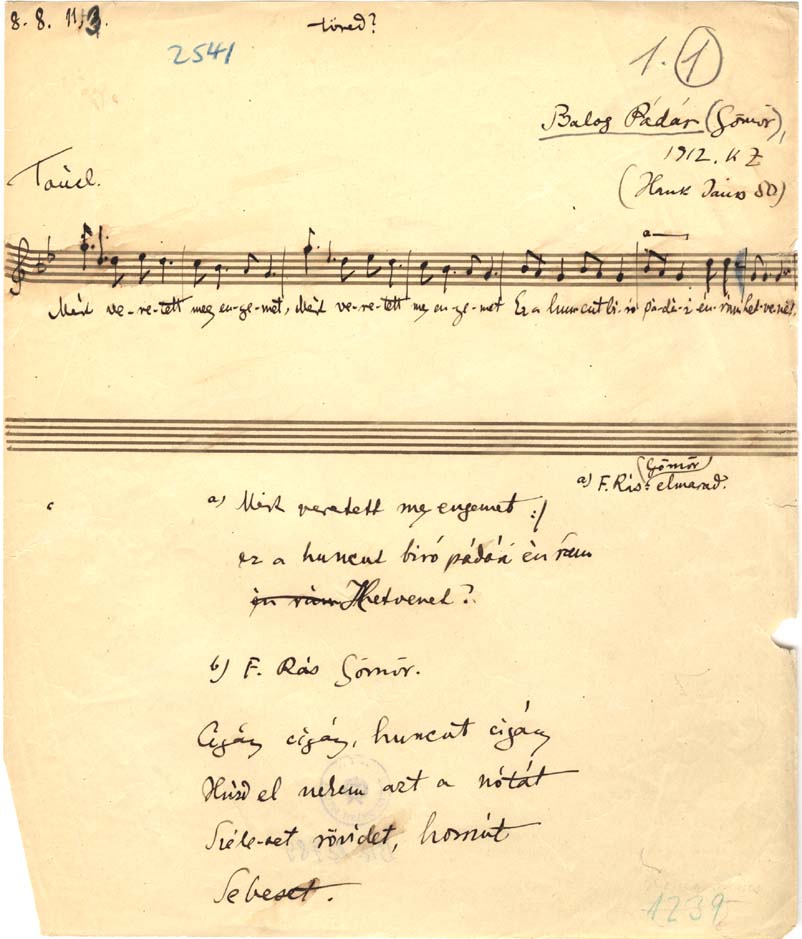 8. 8. 11, 3.
töred?
2541
1. 1
Balog Pádár (Gömör),
1912. K Z
(Hank János 80)
Mért ve-re-tett meg en-ge-met, Mért ve-re-tett meg en-ge-met Ez a hun-cut bi-ró pá-dá-i én-rám het-ve-net,
(Gömör)
a) F. Rás: elmarad.
a) Mért veretett meg engemet :/
ez a huncut biró pádári én rám
én rám Hetvenet?
b) F. Rás Gömör.
Cigány cigány, huncut cigány
Húzd el nekem azt a nótát
Széle-set rövidet, hosszút
Sebeset.
1239